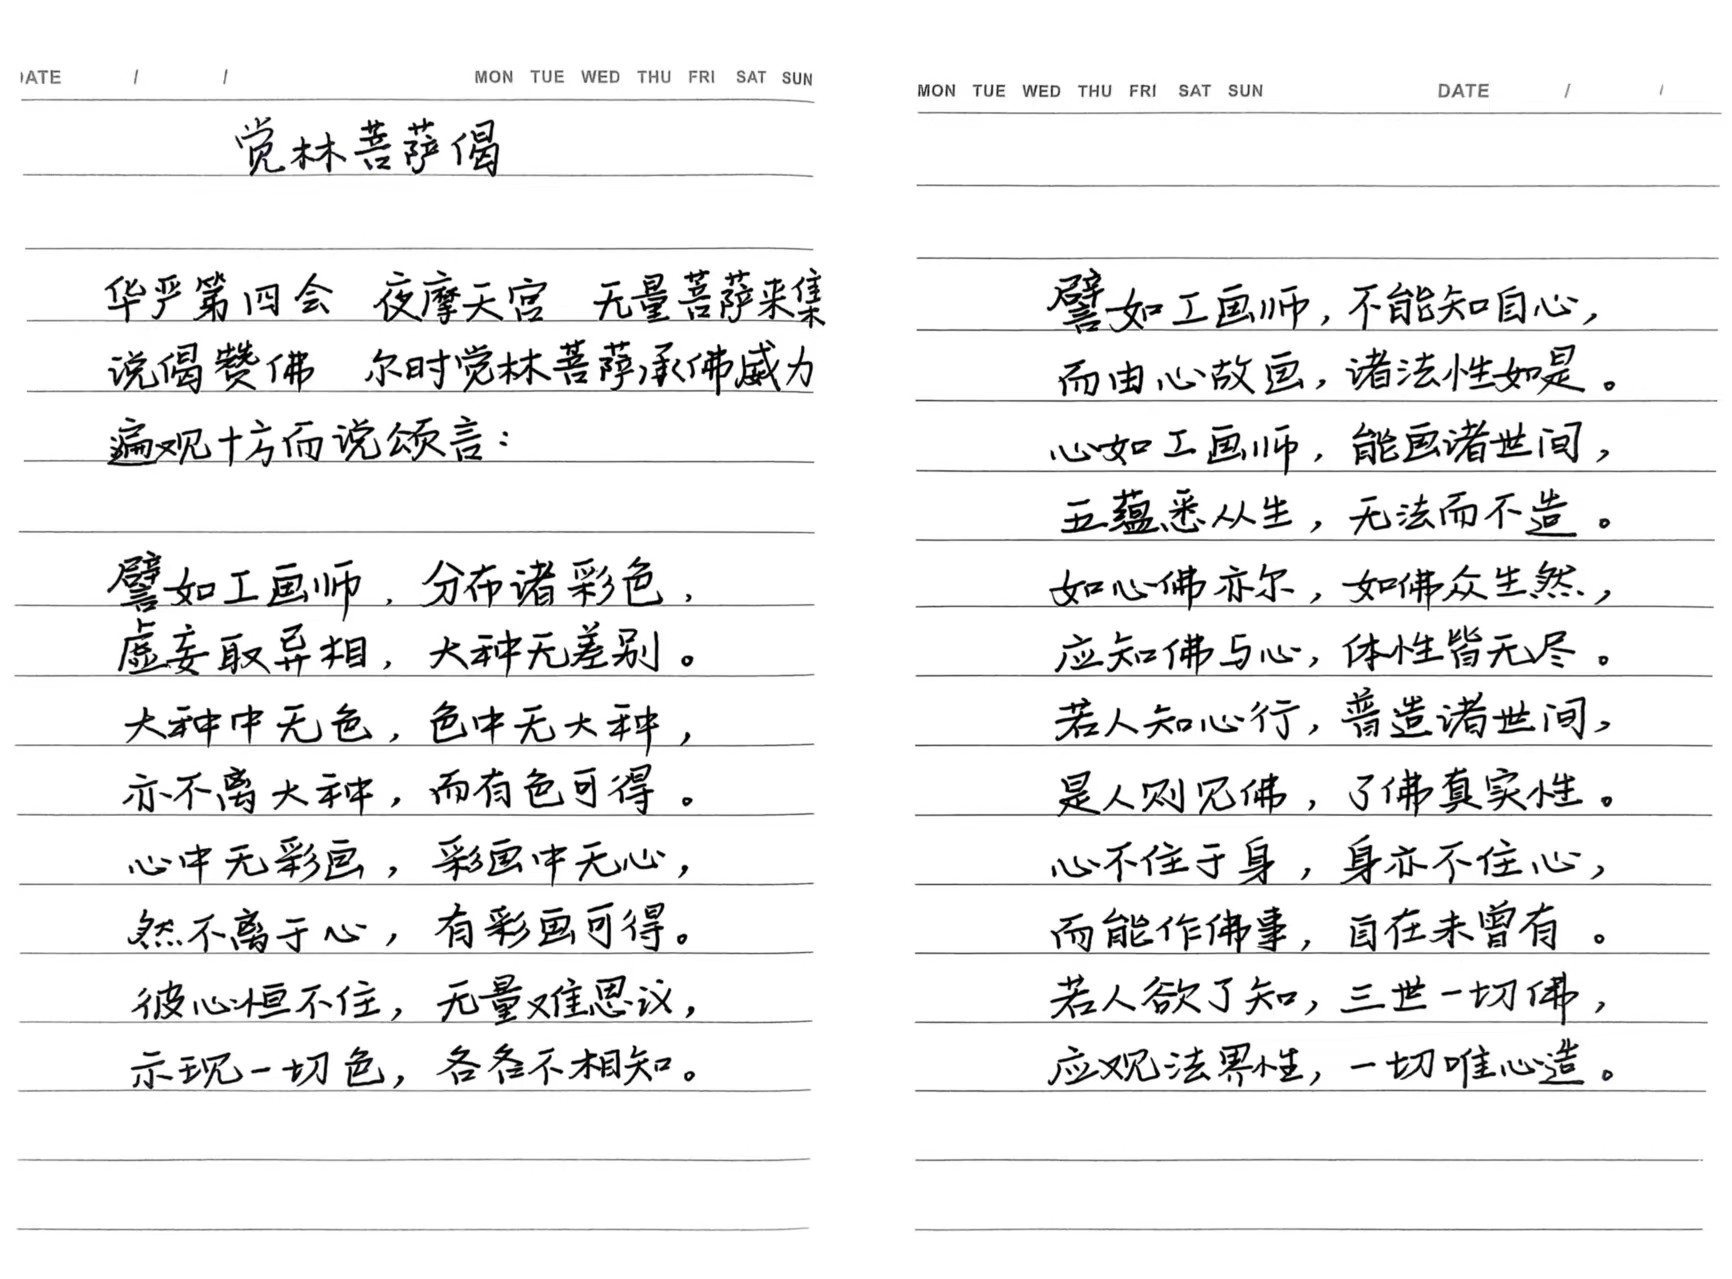 DATE / / MON TUE WED THU FRI SAT SUN
觉林菩萨偈
华严第四会 夜摩天宫 无量菩萨来集
说偈赞佛 尔时觉林菩萨承佛威力
遍观十方而说颂言：
譬如工画师，分布诸彩色，
虚妄取异相，大种无差别。
大种中无色，色中无大种，
亦不离大种，而有色可得。
心中无彩画，彩画中无心，
然不离于心，有彩画可得。
彼心恒不住，无量难思议，
示现一切色，各各不相知。
MON TUE WED THU FRI SAT SUN DATE / /
譬如工画师，不能知自心，
而由心故画，诸法性如是。
心如工画师，能画诸世间，
五蕴悉从生，无法而不造。
如心佛亦尔，如佛众生然，
应知佛与心，体性皆无尽。
若人知心行，普造诸世间，
是人则见佛，了佛真实性。
心不住于身，身亦不住心，
而能作佛事，自在未曾有。
若人欲了知，三世一切佛，
应观法界性，一切唯心造。